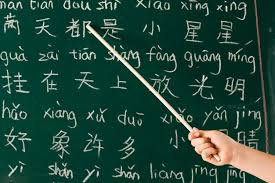 mǎn tiān dōu shì xiǎo xīng xing
满天都是小星星
guà zài tiān shàng fàng guāng míng
挂在天上放光明
hǎo xiàng xǔ duō xiǎo yǎn jīng
好像许多小眼睛
yì shǎn yì shǎn liàng jīng jīng